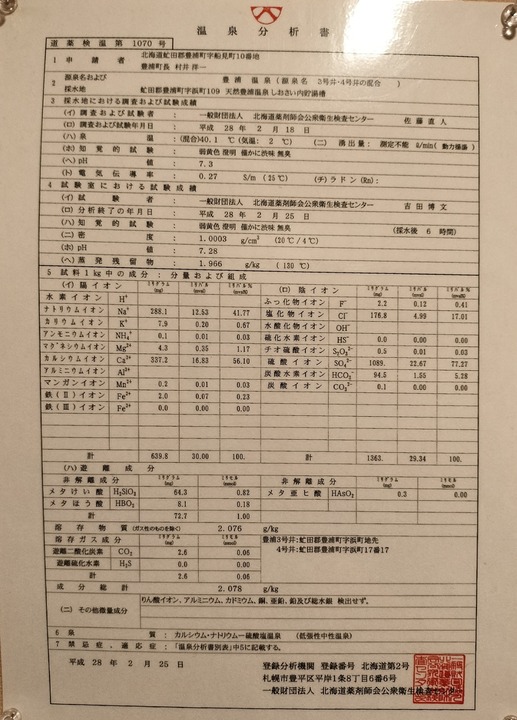 温泉分析書
道薬検温第 1070 号
1 申請者 北海道虻田郡豊浦町字船見町10番地
豊浦町長 村井洋一
2 源泉名および 採水地 豊浦 温泉 (源泉名 3号井・4号井の混合 )
虻田郡豊浦町字浜町109 天然豊浦温泉 しおさい内貯湯槽
3 採水地における調査および試験成績
(イ) 調査および試験者 : 一般財団法人 北海道薬剤師会公衆衛生検査センター 佐藤直人
(ロ) 調査および試験年月日 : 平成 28 年 2 月 18 日
(ハ) 泉温 : (混合)40.1 ℃ (気温: 2 ℃) (ニ) 湧出量: 測定不能 ℓ/min( 動力揚湯 )
(ホ) 知覚的試験 : 弱黄色 澄明 僅かに渋味 無臭
(ヘ) pH 値 : 7.3
(ト) 電気伝導率 : 0.27 S/m (25℃) (チ) ラドン (Rn) :
4 試験室における試験成績
(イ) 試験者 : 一般財団法人 北海道薬剤師会公衆衛生検査センター 吉田博文
(ロ) 分析終了の年月日 : 平成 28 年 2 月 25 日
(ハ) 知覚的試験 : 弱黄色 澄明 僅かに渋味 無臭 (採水後 6 時間)
(ニ) 密度 : 1.0003 g/cm³ (20℃/4℃)
(ホ) pH 値 : 7.28
(ヘ) 蒸発残留物 : 1.966 g/kg (130 ℃)
5 試料1kg中の成分:分量および組成
(イ) 陽イオン ミリグラム (mg) ミリバル (mval) ミリバル% (mval%) (ロ) 陰イオン ミリグラム (mg) ミリバル (mval) ミリバル% (mval%)
水素イオン H⁺ ふっ化物イオン F⁻ 2.2 0.12 0.41
ナトリウムイオン Na⁺ 288.1 12.53 41.77 塩化物イオン Cl⁻ 176.8 4.99 17.01
カリウムイオン K⁺ 7.9 0.20 0.67 水酸化物イオン OH⁻
アンモニウムイオン NH₄⁺ 0.1 0.01 0.03 硫化水素イオン HS⁻ 0.0 0.00 0.00
マグネシウムイオン Mg²⁺ 4.3 0.35 1.17 チオ硫酸イオン S₂O₃²⁻ 0.5 0.01 0.03
カルシウムイオン Ca²⁺ 337.2 16.83 56.10 硫酸イオン SO₄²⁻ 1089. 22.67 77.27
アルミニウムイオン Al³⁺ 炭酸水素イオン HCO₃⁻ 94.5 1.55 5.28
マンガンイオン Mn²⁺ 0.2 0.01 0.03 炭酸イオン CO₃²⁻ 0.1 0.00 0.00
鉄(Ⅱ)イオン Fe²⁺ 2.0 0.07 0.23
鉄(Ⅲ)イオン Fe²⁺ 0.0 0.00 0.00
計 639.8 30.00 100. 計 1363. 29.34 100.
(ハ) 遊離成分
非解離成分 ミリグラム (mg) ミリモル (mmol) 非解離成分 ミリグラム (mg) ミリモル (mmol)
メタけい酸 H₂SiO₃ 64.3 0.82 メタ亜ヒ酸 HAsO₂ 0.3 0.00
メタほう酸 HBO₂ 8.1 0.18
計 72.7 1.00
溶存物質 (ガス性のものを除く) 2.076 g/kg
溶存ガス成分 ミリグラム (mg) ミリモル (mmol) 豊浦3号井:虻田郡豊浦町字浜町地先
遊離二酸化炭素 CO₂ 2.6 0.06 4号井:虻田郡豊浦町字浜町17番17
遊離硫化水素 H₂S 0.0 0.00
計 2.6 0.06
成分総計 2.078 g/kg
(ニ) その他微量成分 りん酸イオン、アルミニウム、カドミウム、銅、亜鉛、鉛及び総水銀 検出せず。
6 泉質 : カルシウム・ナトリウム－硫酸塩温泉 (低張性中性温泉)
7 禁忌症、適応症 : 「温泉分析書別表」中5に記載する。
平成 28 年 2 月 25 日
登録分析機関 登録番号 北海道第2号
札幌市豊平区平岸1条8丁目6番6号
一般財団法人 北海道薬剤師会公衆衛生検査センター